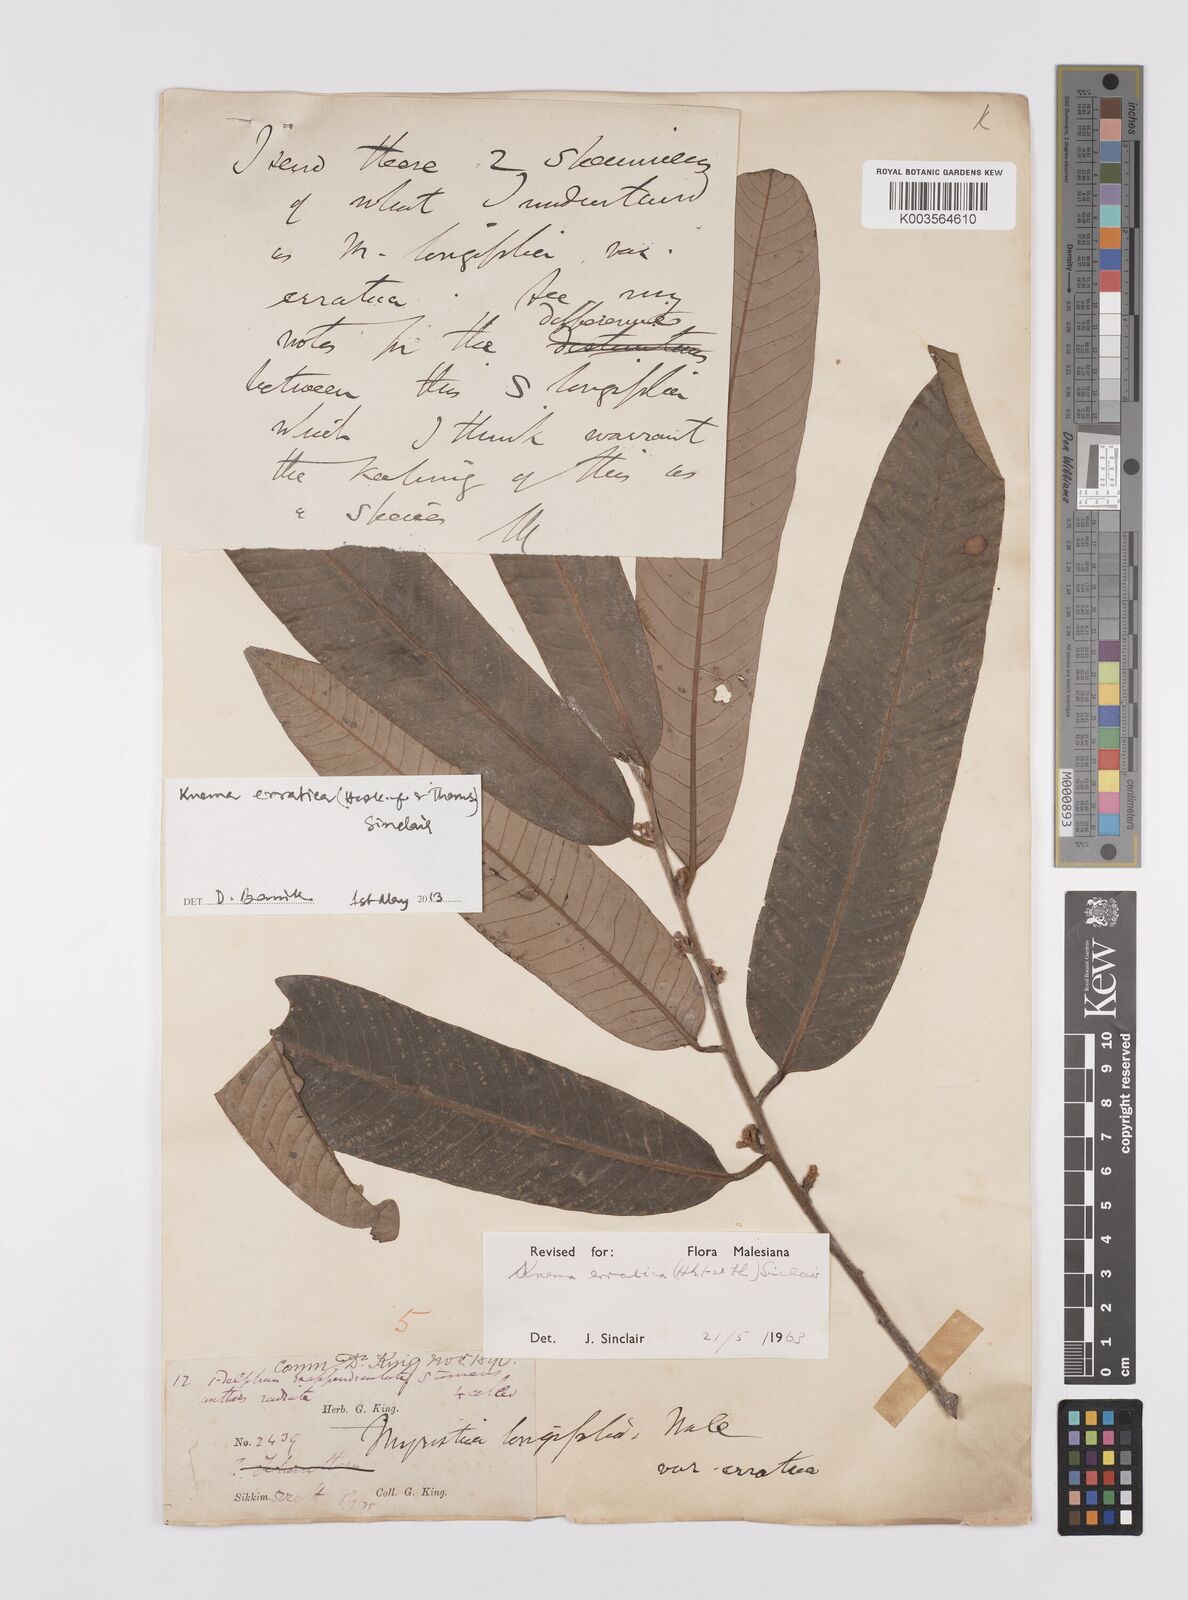 I send these 2 specimens
of what I understand
as M. longifolia, var.
erratica. See my
notes for the differences
between this & longifolia
which I think warrant
the keeping of this as
a species
K
ROYAL BOTANIC GARDENS KEW
K003564610
Knema erratica (Hook.f. & Thoms)
Sinclair
DET. D. Banik 1st May 2013
Revised for: Flora Malesiana
Knema erratica (Hk.f. et Th.) Sinclair
Det. J. Sinclair 21/5/1963
5
Comm. Dr. King
12
anthers radiate
Herb. G. King.
No. 2439
Sikkim. Coll. G. King.
Myristica longifolia, Wall
var. erratica
inches
Don Williams
M000893
Kew
Royal Botanic Gardens
0 1 2 3 4 5 6 7 8 9 10
copyright reserved